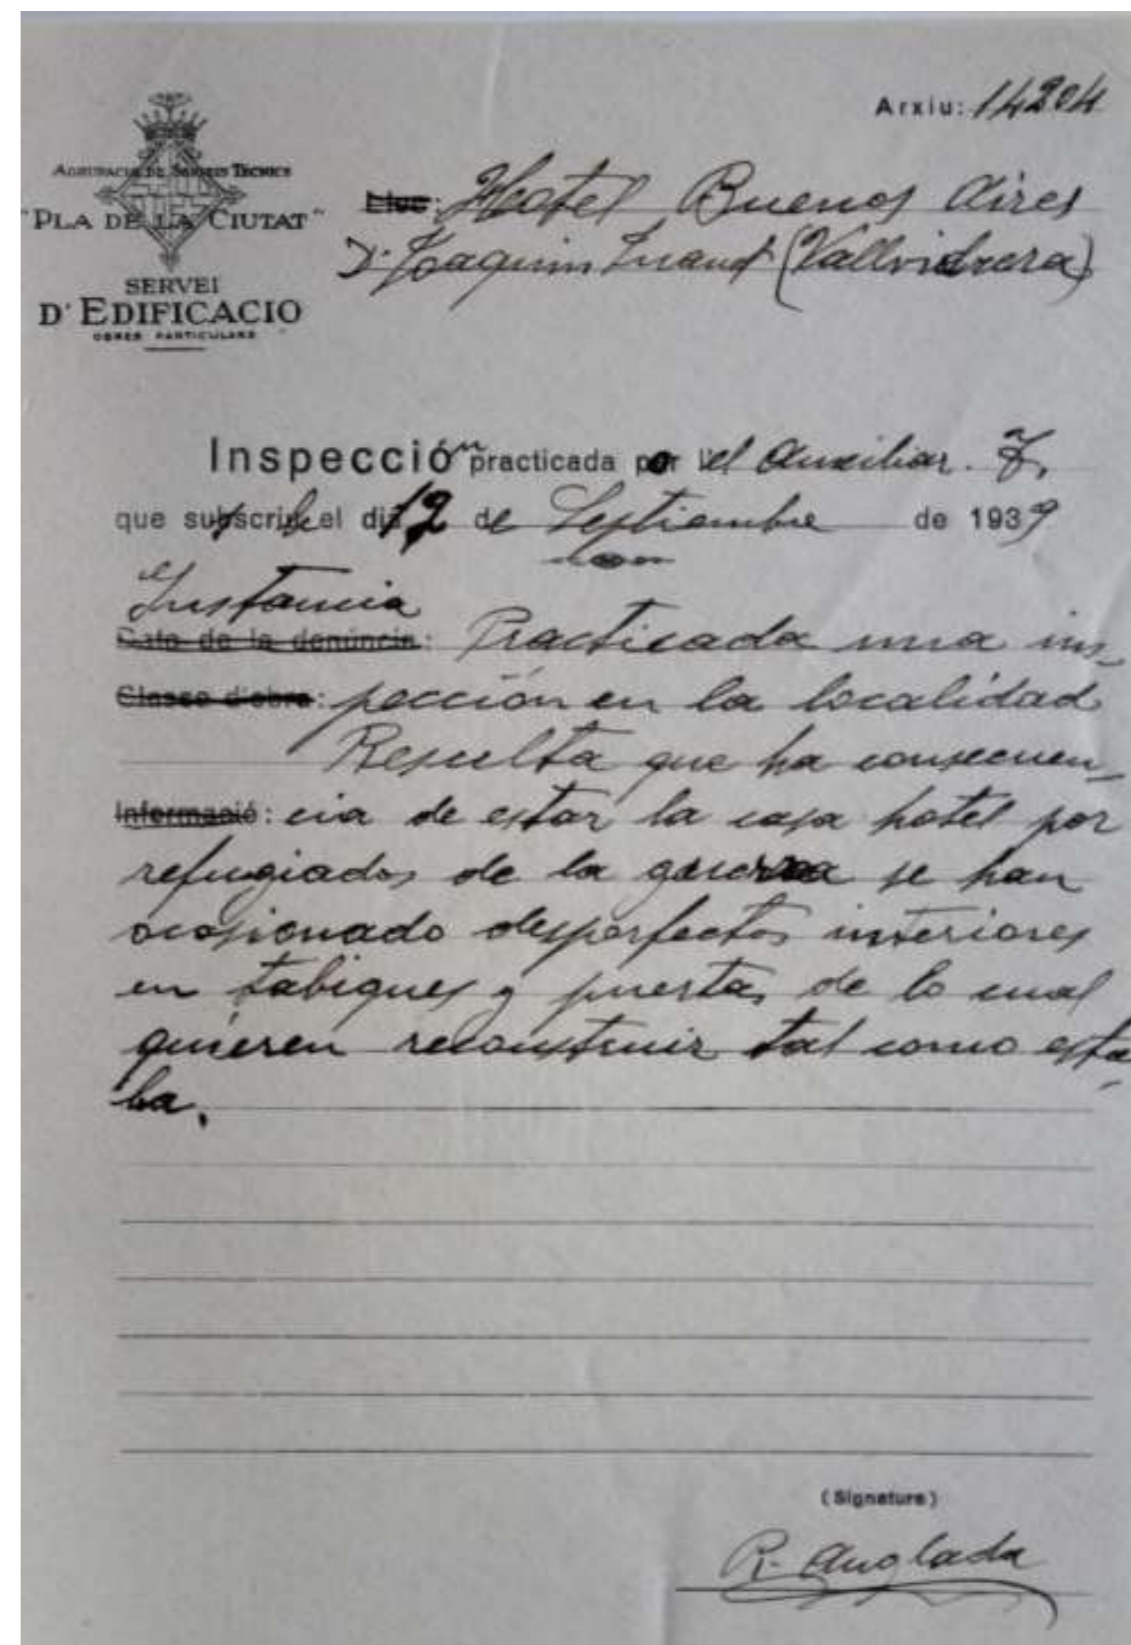 Arxiu: 14204
AGRUPACIÓ DE SERVEIS TÈCNICS
"PLA DE LA CIUTAT"
SERVEI
D'EDIFICACIO
OBRES PARTICULARS
Lloc: Hotel Buenos Aires
D. Joaquim (Vallvidrera)
Inspección practicada por el Auxiliar. T.
que suscribe el dia 12 de Septiembre de 1939
Instancia
Data de la denúncia: Practicada una ins-
Classe d'obra: pección en la localidad
Resulta que ha consecuen-
Informació: cia de estar la casa hotel por
refugiados de la guerra se han
ocasionado desperfectos interiores
en tabiques y puertas de lo cual
quieren reconstruir tal como esta-
ba.
(Signatura)
R. Anglada